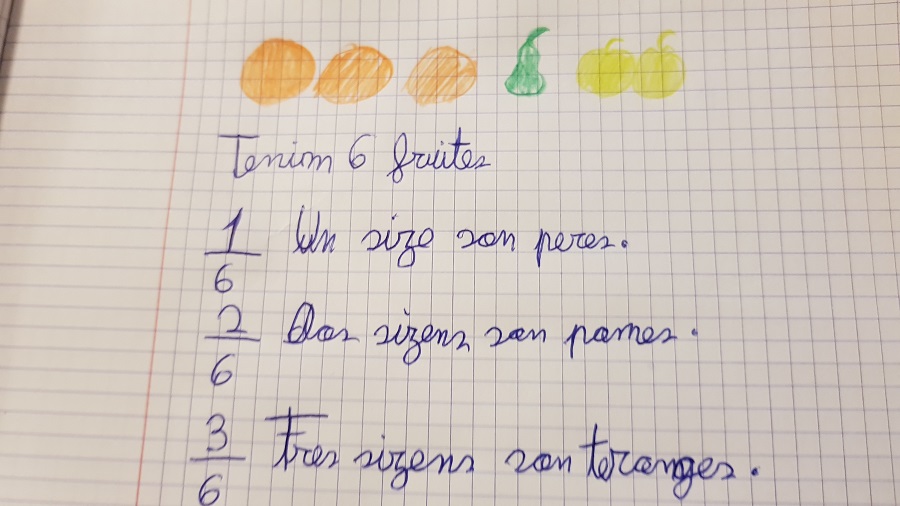 Tenim 6 fruites
1/6 Un size son peres.
2/6 Dos sizens son pomes.
3/6 Tres sizens son teronges.